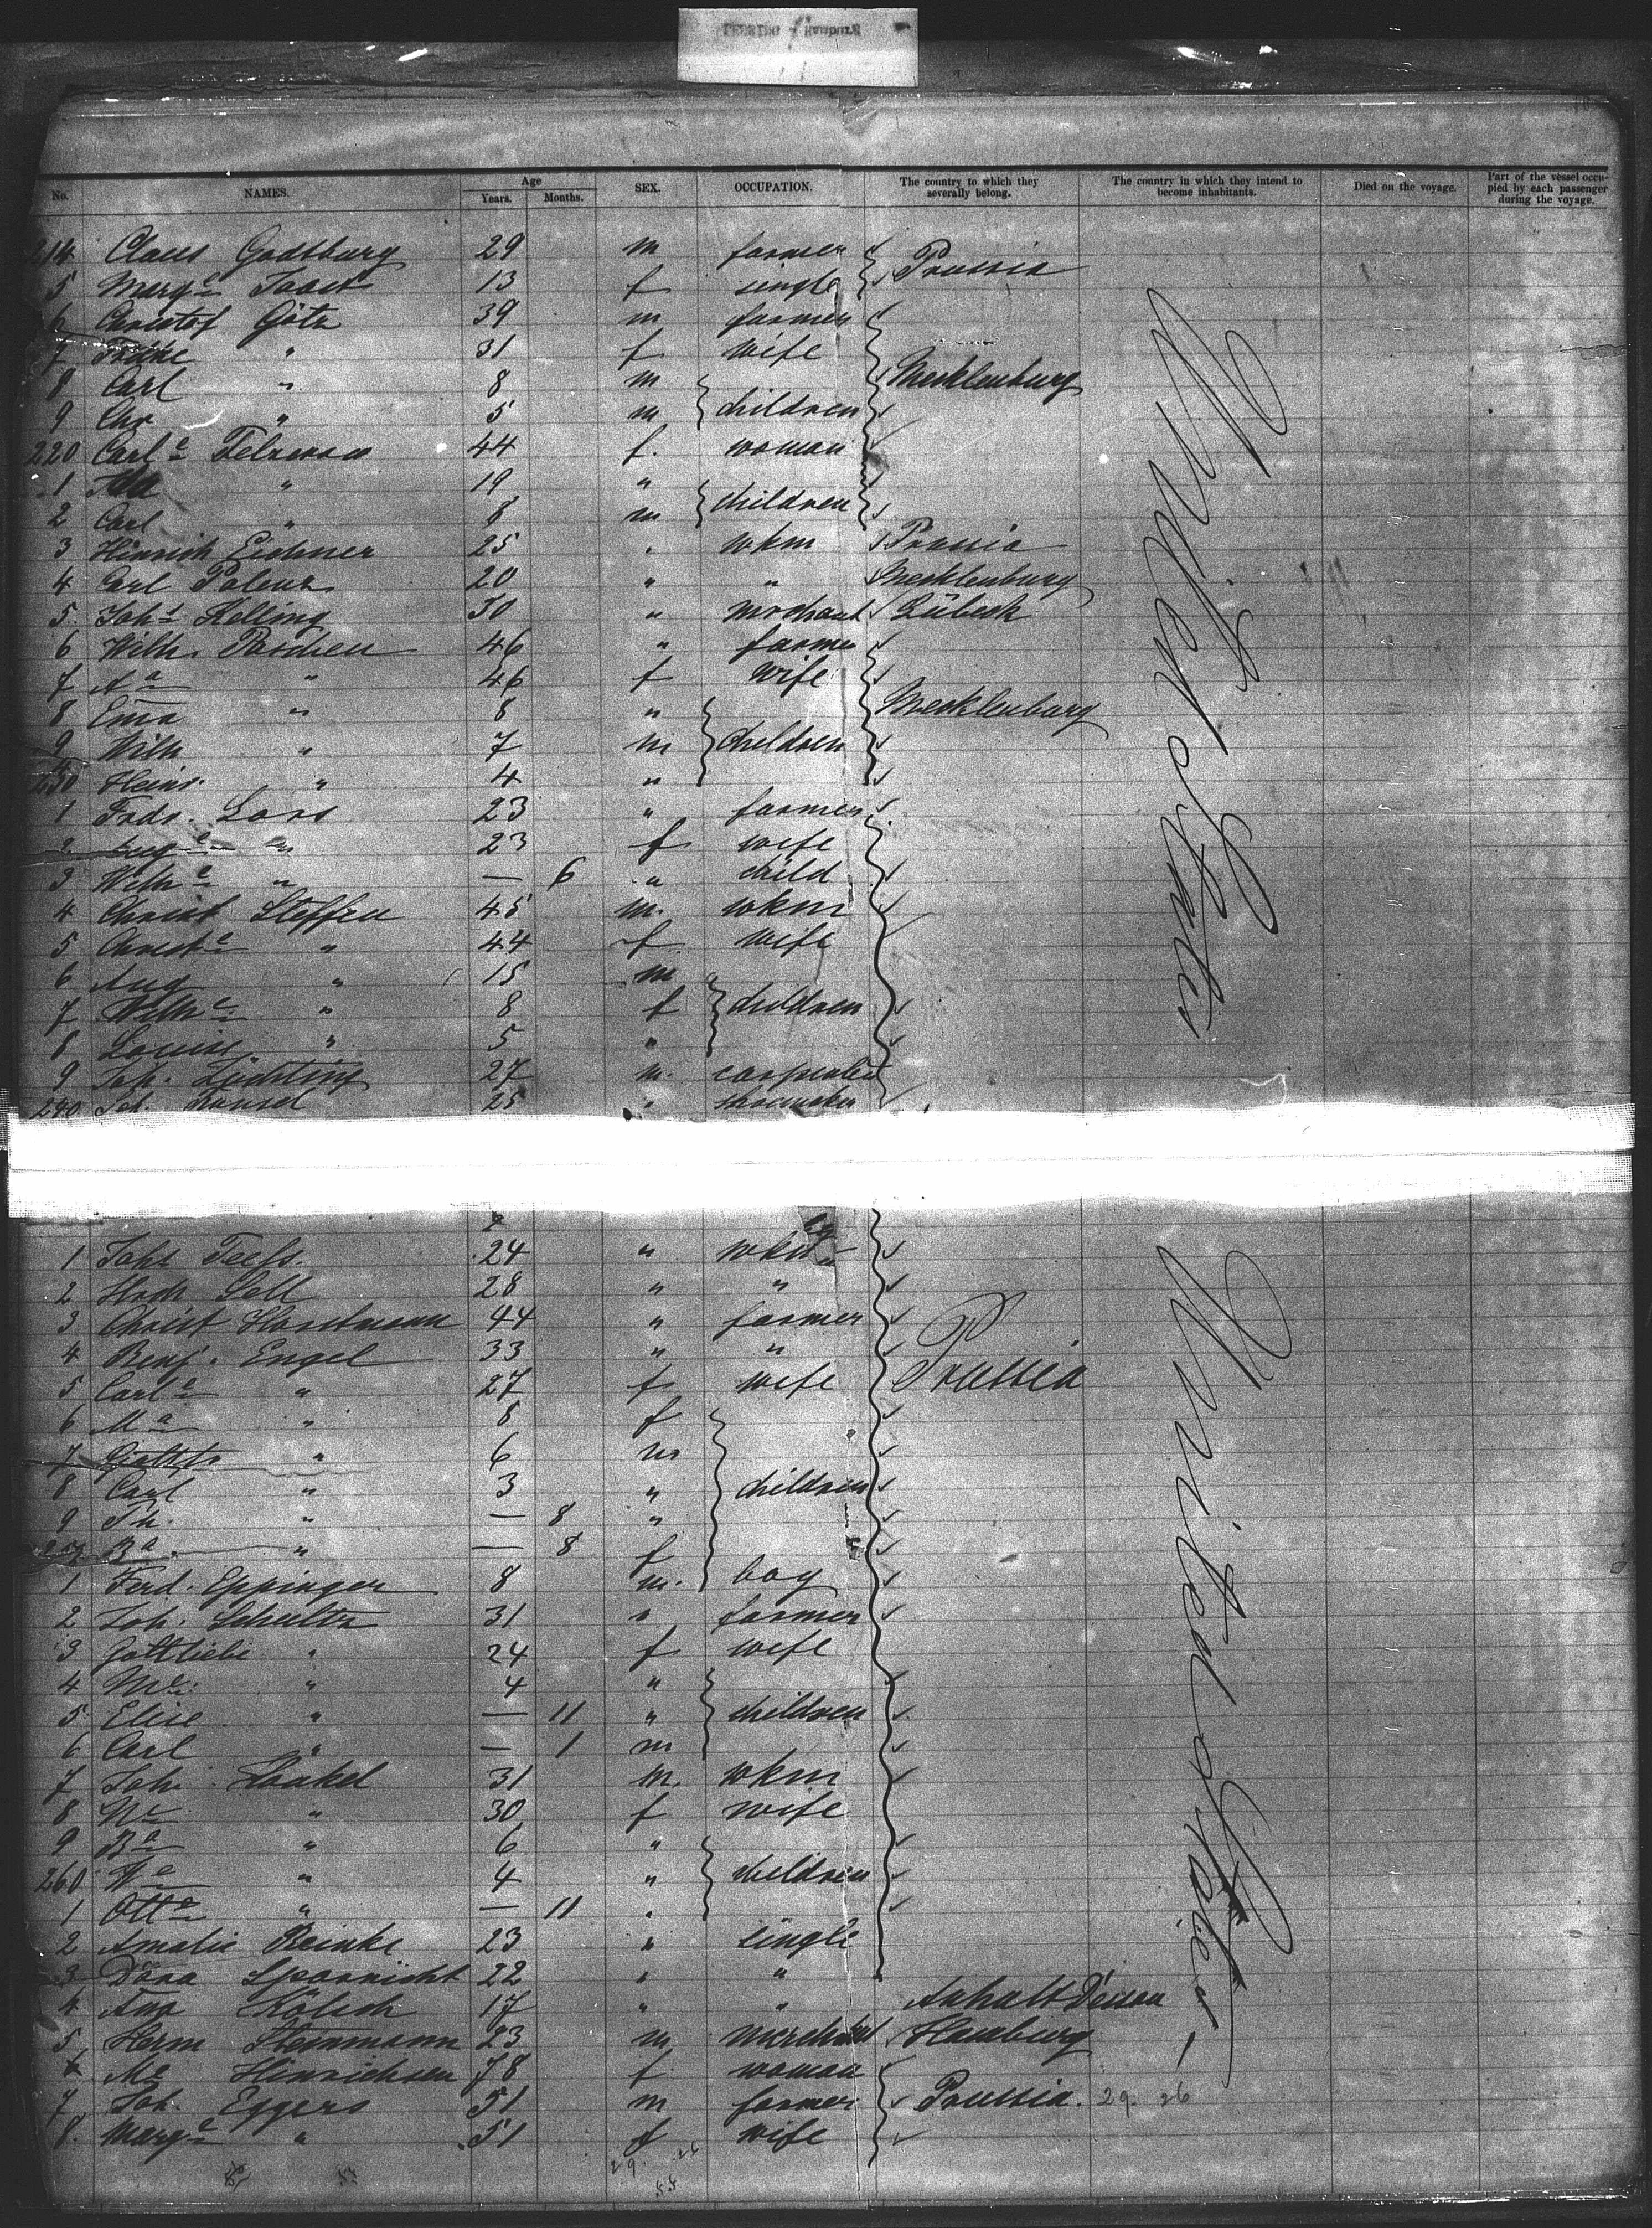 No. NAMES. Age Years. Months. SEX. OCCUPATION. The country to which they severally belong. The country in which they intend to become inhabitants. Died on the voyage. Part of the vessel occupied by each passenger during the voyage.
214 Claus Godtburg 29 m farmer Prussia
5 Marg^a 13 f single
6 Christof Götz 39 m farmer
7 " 31 f wife
8 Carl " 8 m children Mecklenburg
9 Chr " 5 m
220 Carl^e 44 f. woman
1 " 19 "
2 Carl " 8 m children
3 Hinrich Eichner 25 " wkm Prussia
4 Carl Polenz 20 " " Mecklenburg
5. Joh^s Helling 30 " merchant Lübeck
6 Wilh. Paschen 46 " farmer
7 A^a " 46 f wife
8 Ema " 8 " Mecklenburg
9 Wilh " 7 m children
230 Heinr. " 4 "
1 Frdr. Lass 23 " farmer
2 Aug^e " 23 f wife
3 Wilh^e " — 6 " child
4 Christ Steffen 45 m. wkm
5 Christ^e " 44 f wife
6 Aug " 15 m
7 Wilh^e " 8 f children
8 Louise " 5 "
9 Joh. Lüchting 27 m. carpenter
240 Joh. 25 " shoemaker
1 Johs Teefs. 24 " wkm
2 Hch Sell 28 " "
3 Christ Horstmann 44 " farmer
4 Benj. Engel 33 " "
5 Carl^e " 27 f wife Prussia
6 M^a " 8 f
7 Gottfr " 6 m
8 Carl " 3 " children
9 Th. " — 8 "
B^a. " — 8 f
1 Ferd. Eppinger 8 m. boy
2 Joh. Schultz 31 " farmer
3 Gottliebe " 24 f wife
4 M^e. " 4 "
5 Elise " — 11 " children
6 Carl " — 1 m
7 Joh. 31 m. wkm
8 W^e " 30 f wife
9 B^a " 6 "
260 W^e " 4 " children
1 Ott^e " — 11 "
2 Amalie Reinke 23 " single
3 Dora Sparnicht 22 " "
4 Ana Kölsch 17 " " Anhalt Dessau
5 Herm Steinmann 23 m merchant Hamburg
6 M^e Hinrichsen 78 f woman
7 Joh. Eggers 51 m farmer Prussia. 29. 26
8. Marg^e " 51 f wife
29. 26
55
United States
United States